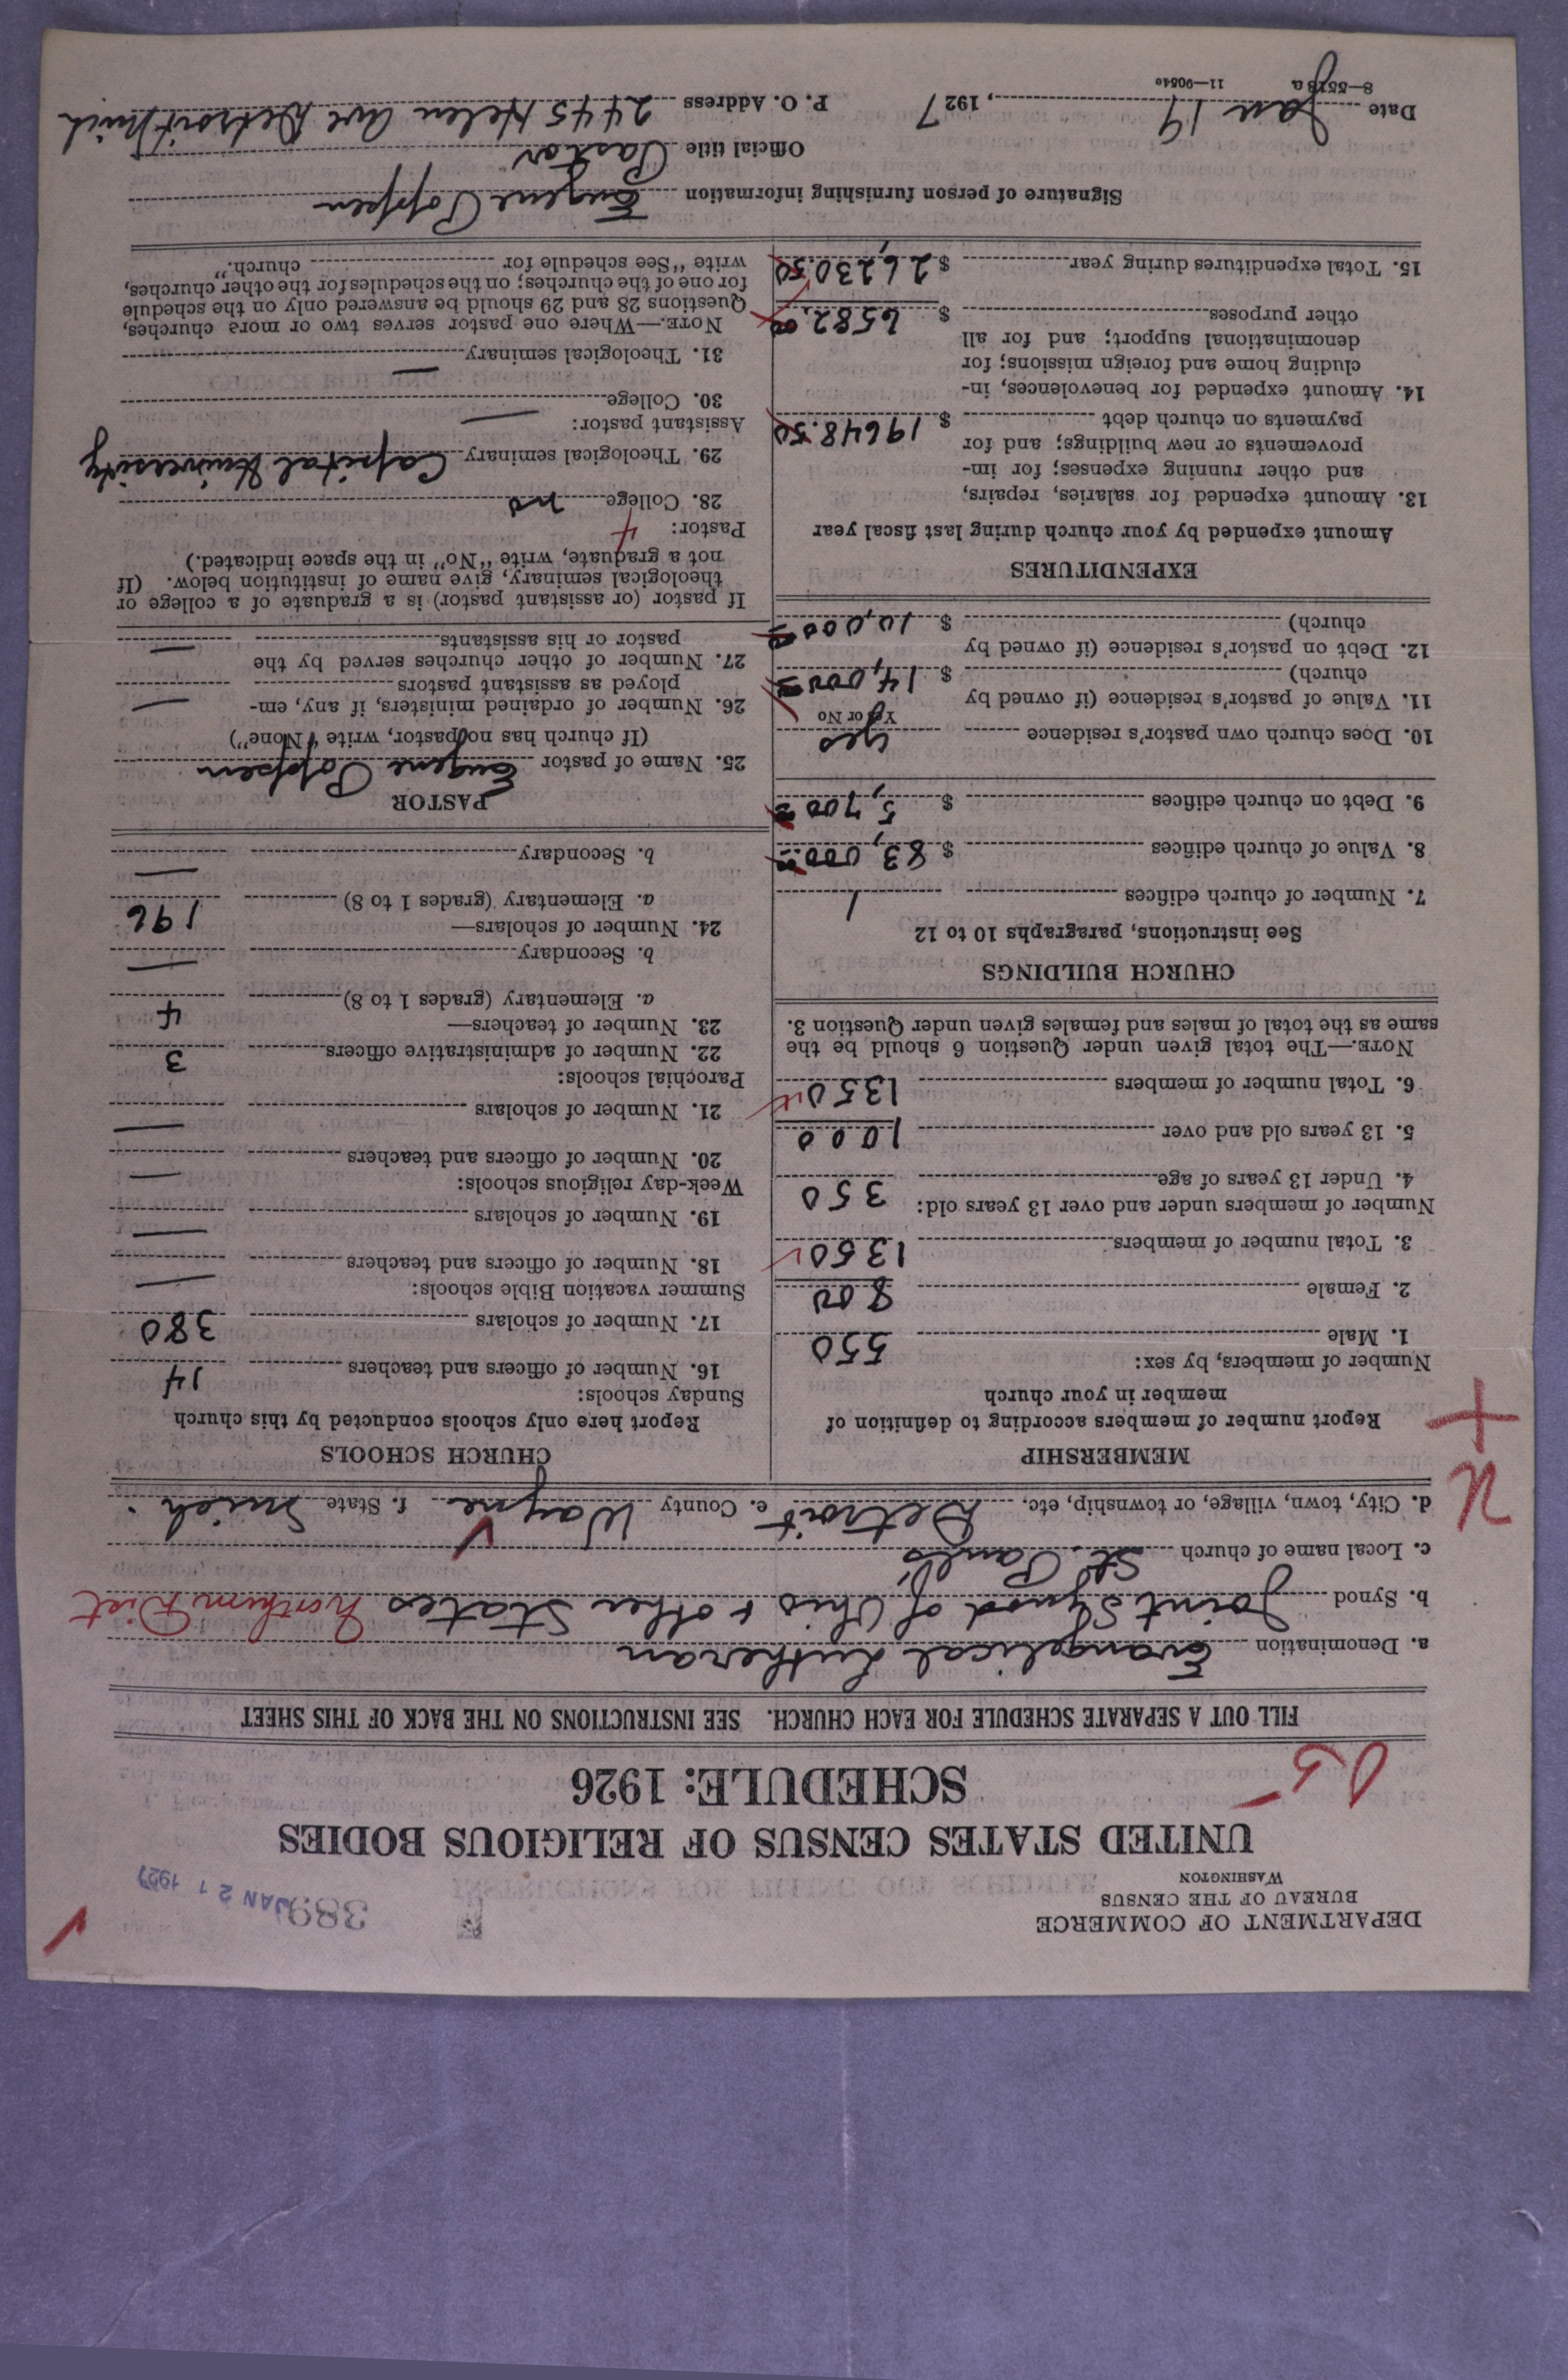 DEPARTMENT OF COMMERCE
BUREAU OF THE CENSUS
WASHINGTON
389
JAN 21 1927
UNITED STATES CENSUS OF RELIGIOUS BODIES
SCHEDULE: 1926
FILL OUT A SEPARATE SCHEDULE FOR EACH CHURCH. SEE INSTRUCTIONS ON THE BACK OF THIS SHEET
a. Denomination Evangelical Lutheran
b. Synod Joint Synod of Ohio & other States Northern Dist
c. Local name of church St. Paul's
d. City, town, village, or township, etc. Detroit e. County Wayne f. State Mich.
MEMBERSHIP
Report number of members according to definition of
member in your church
Number of members, by sex:
1. Male 550
2. Female 800
3. Total number of members 1350
Number of members under and over 13 years old:
4. Under 13 years of age 350
5. 13 years old and over 1000
6. Total number of members 1350
NOTE.—The total given under Question 6 should be the
same as the total of males and females given under Question 3.
CHURCH BUILDINGS
See instructions, paragraphs 10 to 12
7. Number of church edifices 1
8. Value of church edifices $ 83,000
9. Debt on church edifices $ 5,700
10. Does church own pastor's residence yes
Yes or No
11. Value of pastor's residence (if owned by
church) $ 14,000
12. Debt on pastor's residence (if owned by
church) $ 10,000
EXPENDITURES
Amount expended by your church during last fiscal year
13. Amount expended for salaries, repairs,
and other running expenses; for im-
provements or new buildings; and for
payments on church debt $ 19648.50
14. Amount expended for benevolences, in-
cluding home and foreign missions; for
denominational support; and for all
other purposes $ 6582.00
15. Total expenditures during year $ 26,230.50
CHURCH SCHOOLS
Report here only schools conducted by this church
Sunday schools:
16. Number of officers and teachers 14
17. Number of scholars 380
Summer vacation Bible schools:
18. Number of officers and teachers —
19. Number of scholars —
Week-day religious schools:
20. Number of officers and teachers —
21. Number of scholars —
Parochial schools:
22. Number of administrative officers 3
23. Number of teachers—
a. Elementary (grades 1 to 8) 4
b. Secondary —
24. Number of scholars—
a. Elementary (grades 1 to 8) 196
b. Secondary —
PASTOR
25. Name of pastor Eugene Poppen
(If church has no pastor, write "None")
26. Number of ordained ministers, if any, em-
ployed as assistant pastors —
27. Number of other churches served by the
pastor or his assistants —
If pastor (or assistant pastor) is a graduate of a college or
theological seminary, give name of institution below. (If
not a graduate, write "No" in the space indicated.)
Pastor: 4
28. College no
29. Theological seminary Capital University
Assistant pastor:
30. College —
31. Theological seminary —
NOTE.—Where one pastor serves two or more churches,
Questions 28 and 29 should be answered only on the schedule
for one of the churches; on the schedules for the other churches,
write "See schedule for church."
Signature of person furnishing information Eugene Poppen
Official title Pastor
Date Jan 19, 1927 P. O. Address 2445 Helen Ave Detroit Mich
8—5518a 11—9054o